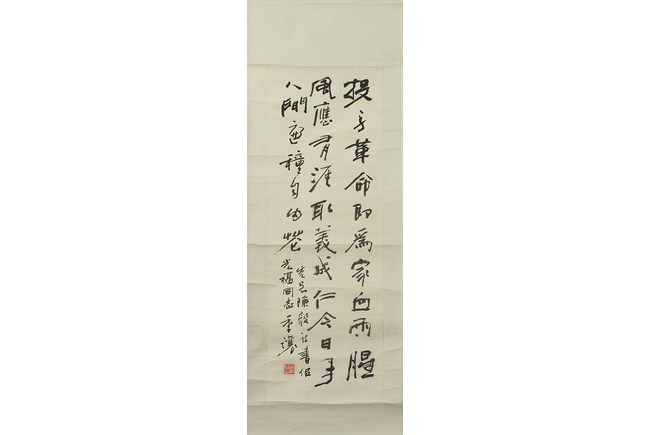 投身革命即為家血雨腥
風應有涯取義成仁今日事
人間遍種自由花
先兄陳毅詩書似
光福同志 季讓